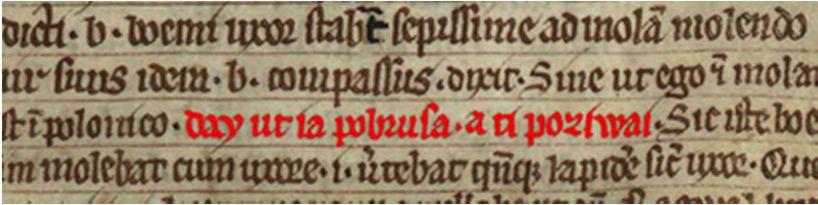 dicti · b · boemi uxor stabat sepissime ad molā molendo
ur suus idem · b · compassus · dixit · Sine ut ego ī molar
st ī polonico · day ut ia pobrusa · a ti poziwai · Sic iste boe
m molebat cum uxore · i · utebat qn̄q; lapide sic uxor · Que